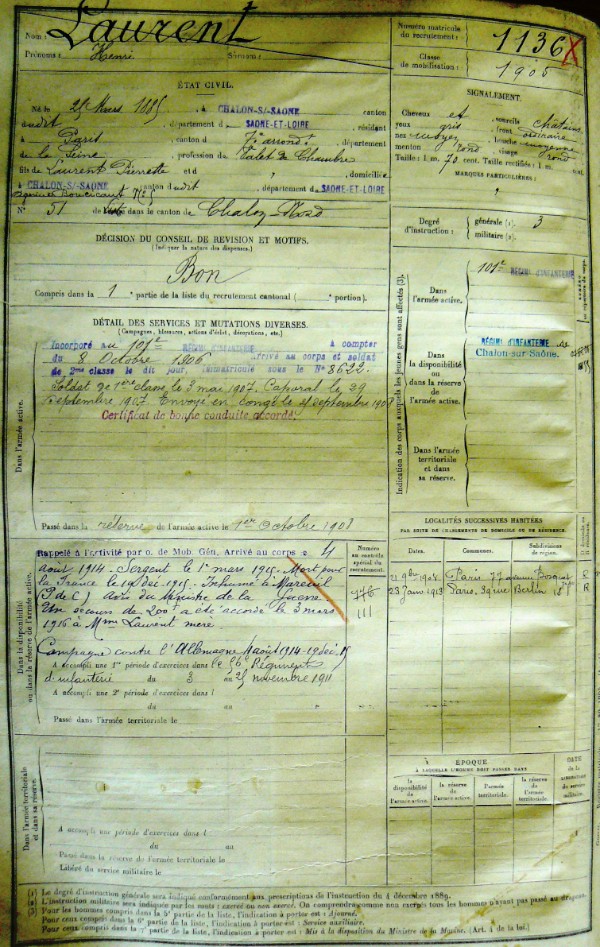 Nom : Laurent
Prénoms : Henri Surnoms :
Numéro matricule du recrutement : 1136
Classe de mobilisation : 1905
ÉTAT CIVIL.
Né le 25 Mars 1885, à CHALON-S/-SAONE canton
dudit, département d SAONE-ET-LOIRE, résidant
à Paris canton d 7e arrondt, département
de la Seine, profession de Valet de Chambre
fils de Laurent Pierrette et d " , domiciliée
à CHALON-S/-SAONE, canton dudit, département de SAONE-ET-LOIRE
N° 51 de dans le canton de Chalon Nord
SIGNALEMENT.
Cheveux et sourcils châtains
yeux gris, front ordinaire
nez moyen, bouche moyenne
menton rond, visage rond
Taille : 1 m. 70 cent. Taille rectifiée : 1 m. cent.
MARQUES PARTICULIÈRES :
Degré d'instruction : générale (1). 3
militaire (2).
DÉCISION DU CONSEIL DE REVISION ET MOTIFS.
(Indiquer la nature des dispenses.)
Bon
Compris dans la 1e partie de la liste du recrutement cantonal ( portion).
DÉTAIL DES SERVICES ET MUTATIONS DIVERSES.
(Campagnes, blessures, actions d'éclat, décorations, etc.)
Dans l'armée active.
Incorporé au 101e RÉGIMENT D'INFANTERIE à compter
du 8 Octobre 1906 Arrivé au corps et soldat
de 2me classe le dit jour, immatriculé sous le N° 8622.
Soldat de 1ère classe le 3 mai 1907. Caporal le 29
Septembre 1907. Envoyé en congé le septembre 1908
Certificat de bonne conduite accordé.
Passé dans la réserve de l'armée active le 1er Octobre 1908
Indication des corps auxquels les jeunes gens sont affectés (3).
Dans l'armée active.
101e RÉGIMENT D'INFANTERIE
Dans la disponibilité ou dans la réserve de l'armée active.
RÉGIMENT D'INFANTERIE de
Chalon-sur-Saône.
Dans l'armée territoriale et dans sa réserve.
Dans la disponibilité ou dans la réserve de l'armée active.
Rappelé à l'activité par o. de Mob. Gén. Arrivé au corps le 4
août 1914. Sergent le 1er mars 1915. Mort pour
la France le 19 déc. 1915. Inhumé à Mareuil
(P de C) Avis du Ministre de la Guerre
Un secours de 200f a été accordé le 3 mars
1916 à Mme Laurent mère.
Campagne contre l'Allemagne 4 août 1914-19 déc 15
A accompli une 1re période d'exercices dans le 56e Régiment
d'infanterie du 3 au 25 novembre 1911
A accompli une 2e période d'exercices dans l
du au
Passé dans l'armée territoriale le
Numéro au contrôle spécial du recrutement.
176
111
LOCALITÉS SUCCESSIVES HABITÉES
PAR SUITE DE CHANGEMENTS DE DOMICILE OU DE RÉSIDENCE.
Dates. Communes. Subdivisions de région.
21 9bre 1908 Paris 77 avenue Bosquet R
23 Juin 1913 Paris, 39 rue Berlin R
ÉPOQUE
À LAQUELLE L'HOMME DOIT PASSER DANS
la disponibilité de l'armée active.
la réserve de l'armée active.
l'armée territoriale.
la réserve de l'armée territoriale.
DATE de la libération du service militaire.
Dans l'armée territoriale et dans sa réserve.
A accompli une période d'exercices dans l
du au
Passé dans la réserve de l'armée territoriale le
Libéré du service militaire le
(1) Le degré d'instruction générale sera indiqué conformément aux prescriptions de l'instruction du 4 décembre 1889.
(2) L'instruction militaire sera indiquée par les mots : exercé ou non exercé. On comprendra comme non exercés tous les hommes n'ayant pas passé au drapeau.
(3) Pour les hommes compris dans la 5e partie de la liste, l'indication à porter est : Ajourné.
Pour ceux compris dans la 6e partie de la liste, l'indication à porter est : Service auxiliaire.
Pour ceux compris dans la 7e partie de la liste, l'indication à porter est : Mis à la disposition du Ministre de la Marine. (Art. 4 de la loi.)